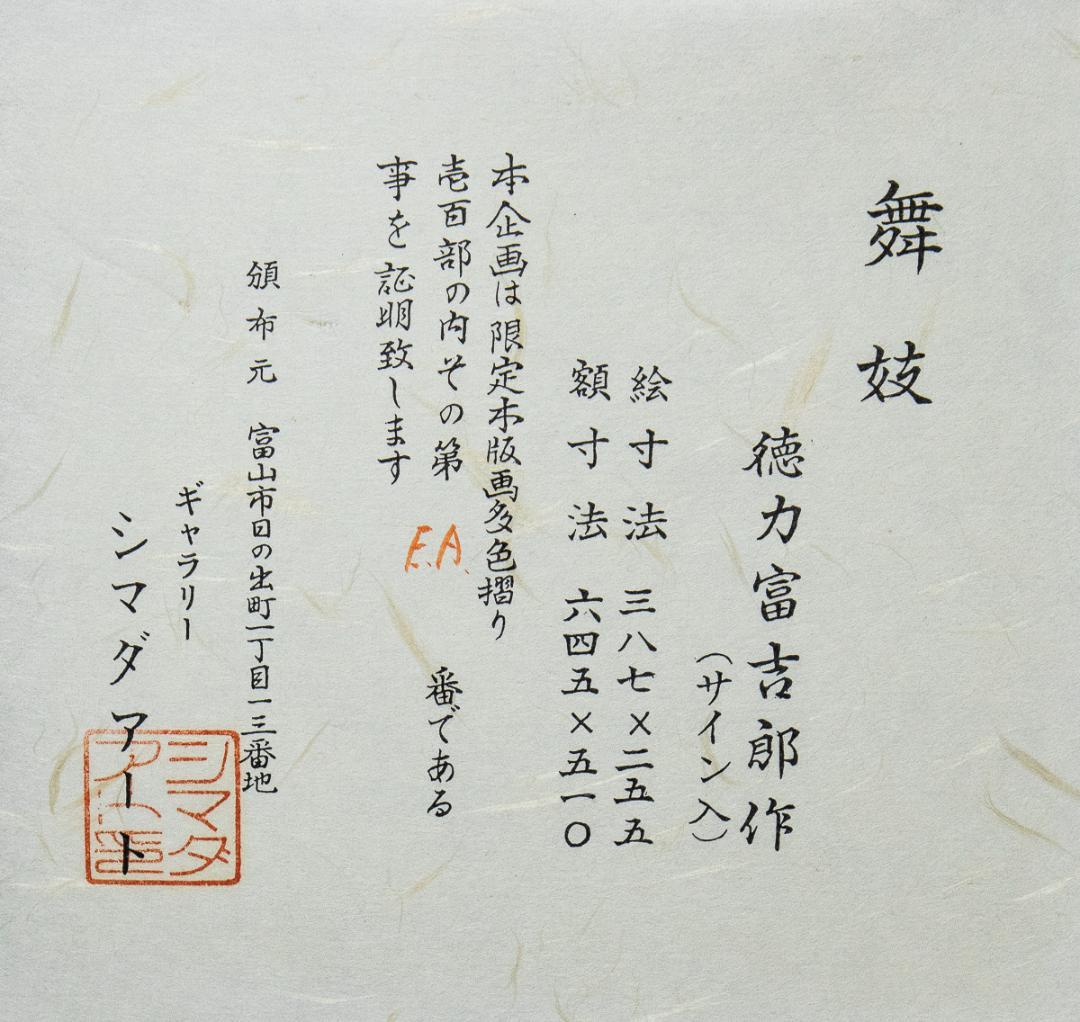 舞妓
徳力富吉郎作
(サイン入)
絵寸法 三八七×二五五
額寸法 六四五×五一〇
本企画は限定木版画多色摺り
壱百部の内その第 E.A. 番である
事を証明致します
頒布元 富山市日の出町一丁目一三番地
ギャラリー
シマダアート
シマダ
アート印